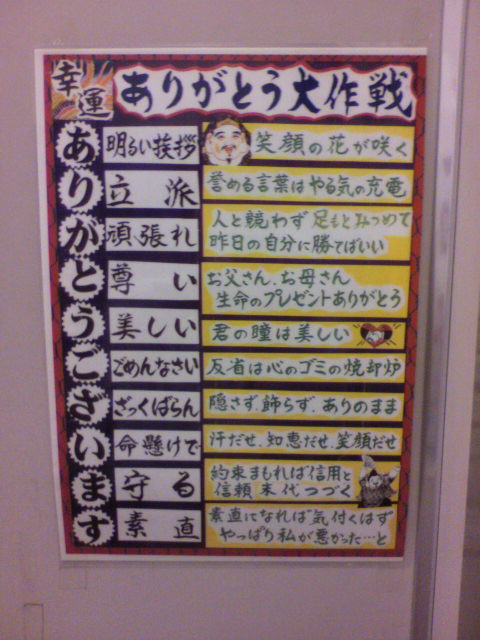 幸運
ありがとう大作戦
ありがとうございます
明るい挨拶
笑顔の花が咲く
立派
誉める言葉はやる気の充電
頑張れ
人と競わず足もとみつめて
昨日の自分に勝てばいい
尊い
お父さん、お母さん
生命のプレゼントありがとう
美しい
君の瞳は美しい
ごめんなさい
反省は心のゴミの焼却炉
ざっくばらん
隠さず、飾らず、ありのまま
命懸けで
汗だせ、知恵だせ、笑顔だせ
守る
約束まもれば信用と
信頼末代つづく
素直
素直になれば気付くはず
やっぱり私が悪かった…と